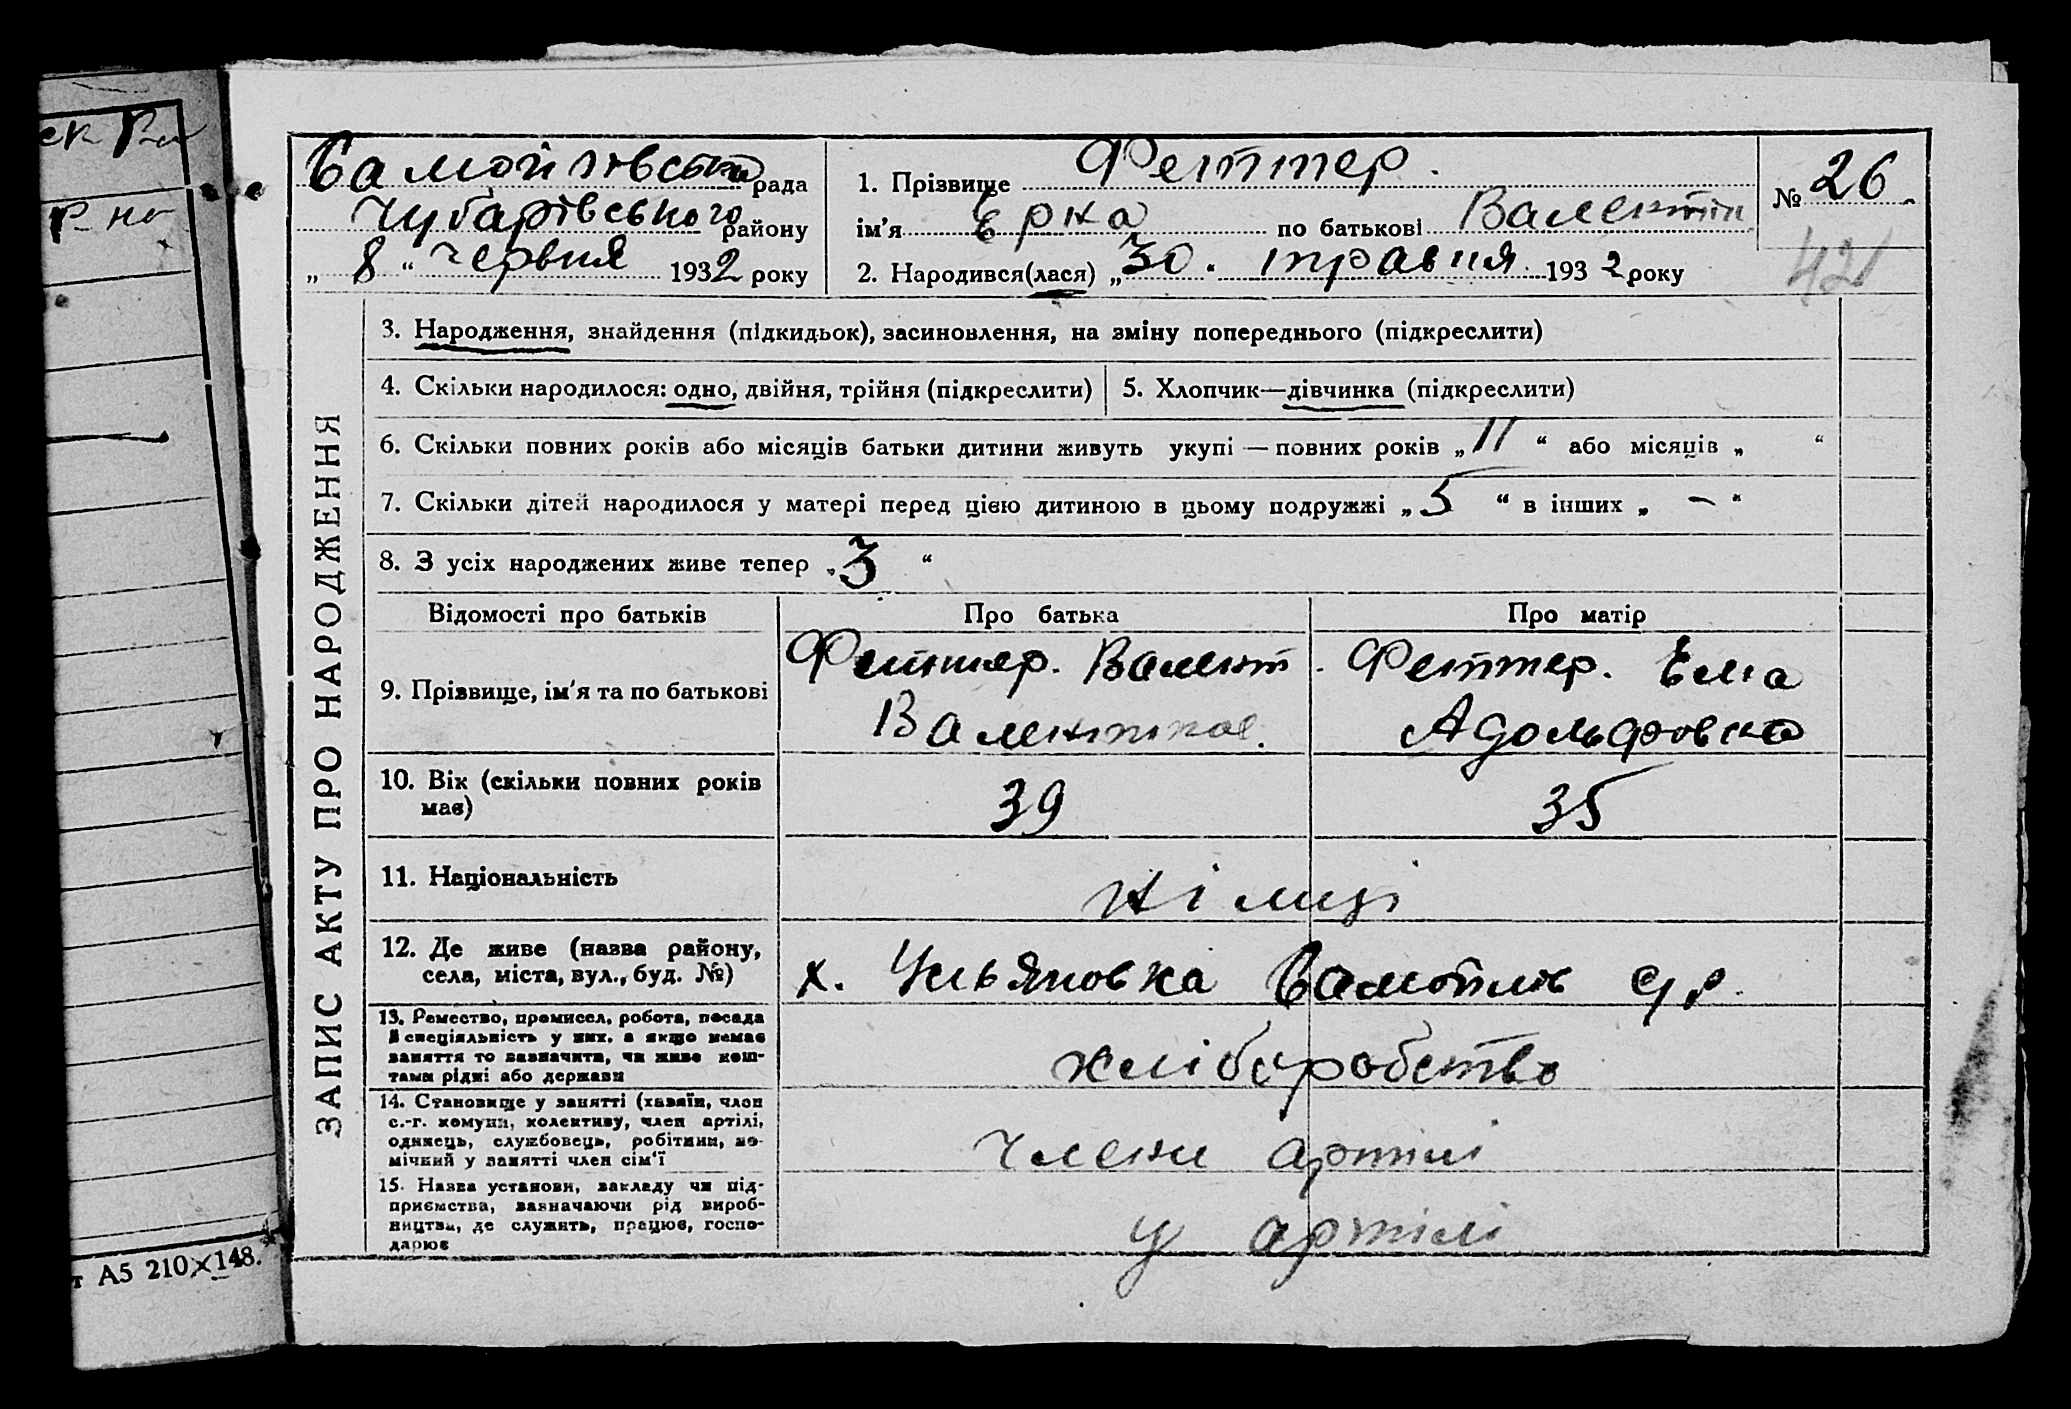 Самойлівська рада
Чубарівського району
„ 8 “ червня 1932 року
1. Прізвище Феттер.
ім'я Ерна по батькові Валентин
2. Народився(лася) „ 30. травня 1932 року
№ 26
421
ЗАПИС АКТУ ПРО НАРОДЖЕННЯ
3. Народження, знайдення (підкидьок), засиновлення, на зміну попереднього (підкреслити)
4. Скільки народилося: одно, двійня, трійня (підкреслити)
5. Хлопчик—дівчинка (підкреслити)
6. Скільки повних років або місяців батьки дитини живуть укупі — повних років „ 11 “ або місяців „ “
7. Скільки дітей народилося у матері перед цією дитиною в цьому подружжі „ 5 “ в інших „ – “
8. З усіх народжених живе тепер „ 3 “
Відомості про батьків
Про батька
Про матір
9. Прізвище, ім'я та по батькові
Феттер. Валент
Валентинов.
Феттер. Ема
Адольфовна
10. Вік (скільки повних років
має)
39
35
11. Національність
німці
12. Де живе (назва району,
села, міста, вул., буд. №)
х. Ульяновка Самойлів с/р.
13. Ремество, промисел, робота, посада
й спеціяльність у них, а якщо немає
заняття то зазначити, чи живе кош-
тами рідні або держави
хліборобство
14. Становище у занятті (хазяїн, член
с.-г. комуни, колективу, член артілі,
одинець, службовець, робітник, по-
мічний у занятті член сім'ї
члени артілі
15. Назва установи, закладу чи під-
приємства, зазначаючи рід вироб-
ництва, де служить, працює, госпо-
дарює
у артілі
т А5 210×148.